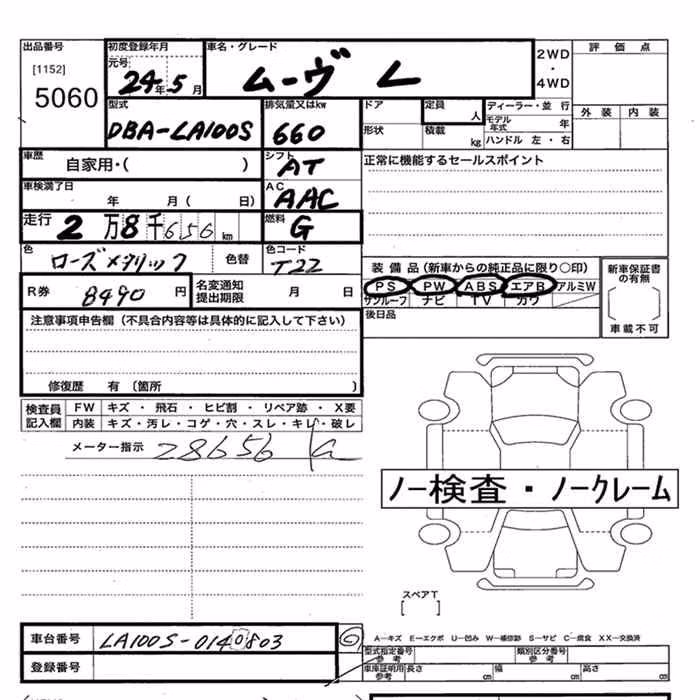 出品番号 初度登録年月 車名・グレード 2WD・4WD 評価点
[1152] 元号 24年5月 ムーヴ L
5060 外装 内装
型式 排気量又はkw ドア 定員 人 ディーラー・並行
DBA-LA100S 660 形状 積載 kg モデル年式 年
ハンドル 左・右
車歴 自家用・( ) シフト AT 正常に機能するセールスポイント
車検満了日 年 月( 日) AC AAC
走行 2万8千656km 燃料 G
色 ローズメタリック 色替 色コード T22
装備品(新車からの純正品に限り○印) 新車保証書の有無
R券 8490円 名変通知提出期限 月 日
PS PW ABS エアB アルミW
サンルーフ ナビ TV カワ
後日品 車載不可
注意事項申告欄(不具合内容等は具体的に記入して下さい)
修復歴 有〔箇所 〕
検査員記入欄 FW キズ・飛石・ヒビ割・リペア跡・X要
内装 キズ・汚レ・コゲ・穴・スレ・キレ・破レ
メーター指示 28656 K
ノー検査・ノークレーム
スペアT
[ ]
車台番号 LA100S-0140803
A―キズ E―エクボ U―凹み W―補修跡 S―サビ C―腐食 XX―交換済
型式指定番号 参考 類別区分番号 参考
登録番号 車庫証明用 参考 長さ cm 幅 cm 高さ cm